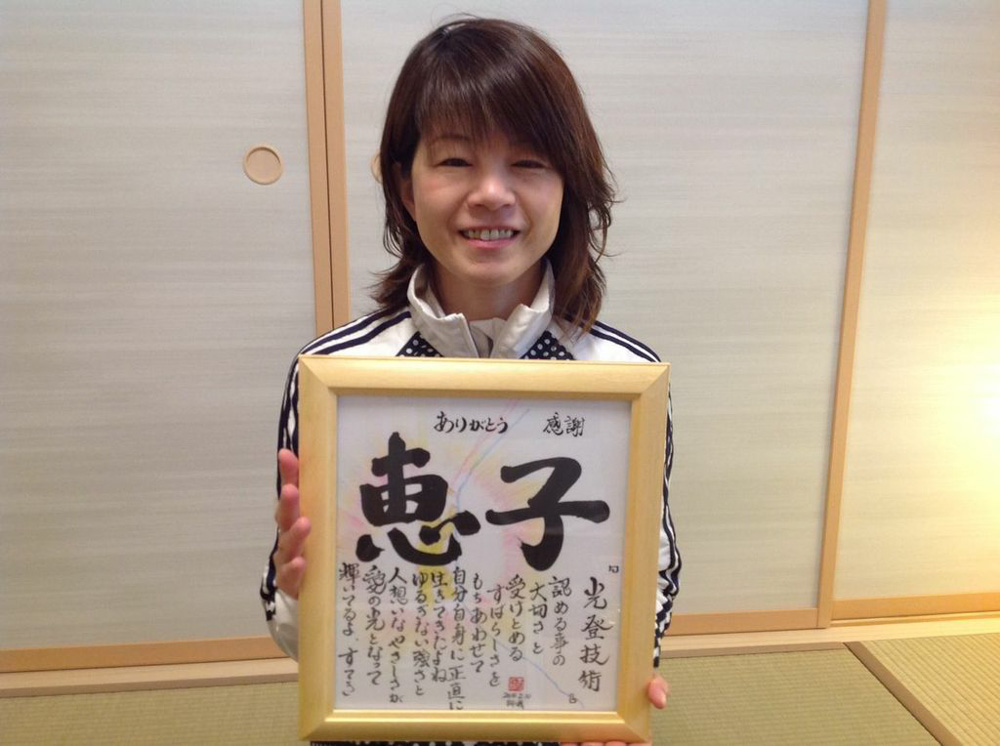 ありがとう 感謝
恵子
光登技術
認める事の
大切さと
受けとめる
すばらしさを
もちあわせて
自分自身に正直に
生きてきたよね
ゆるぎない強さと
人想いなやさしさが
愛の光となって
輝いてるよ すてき